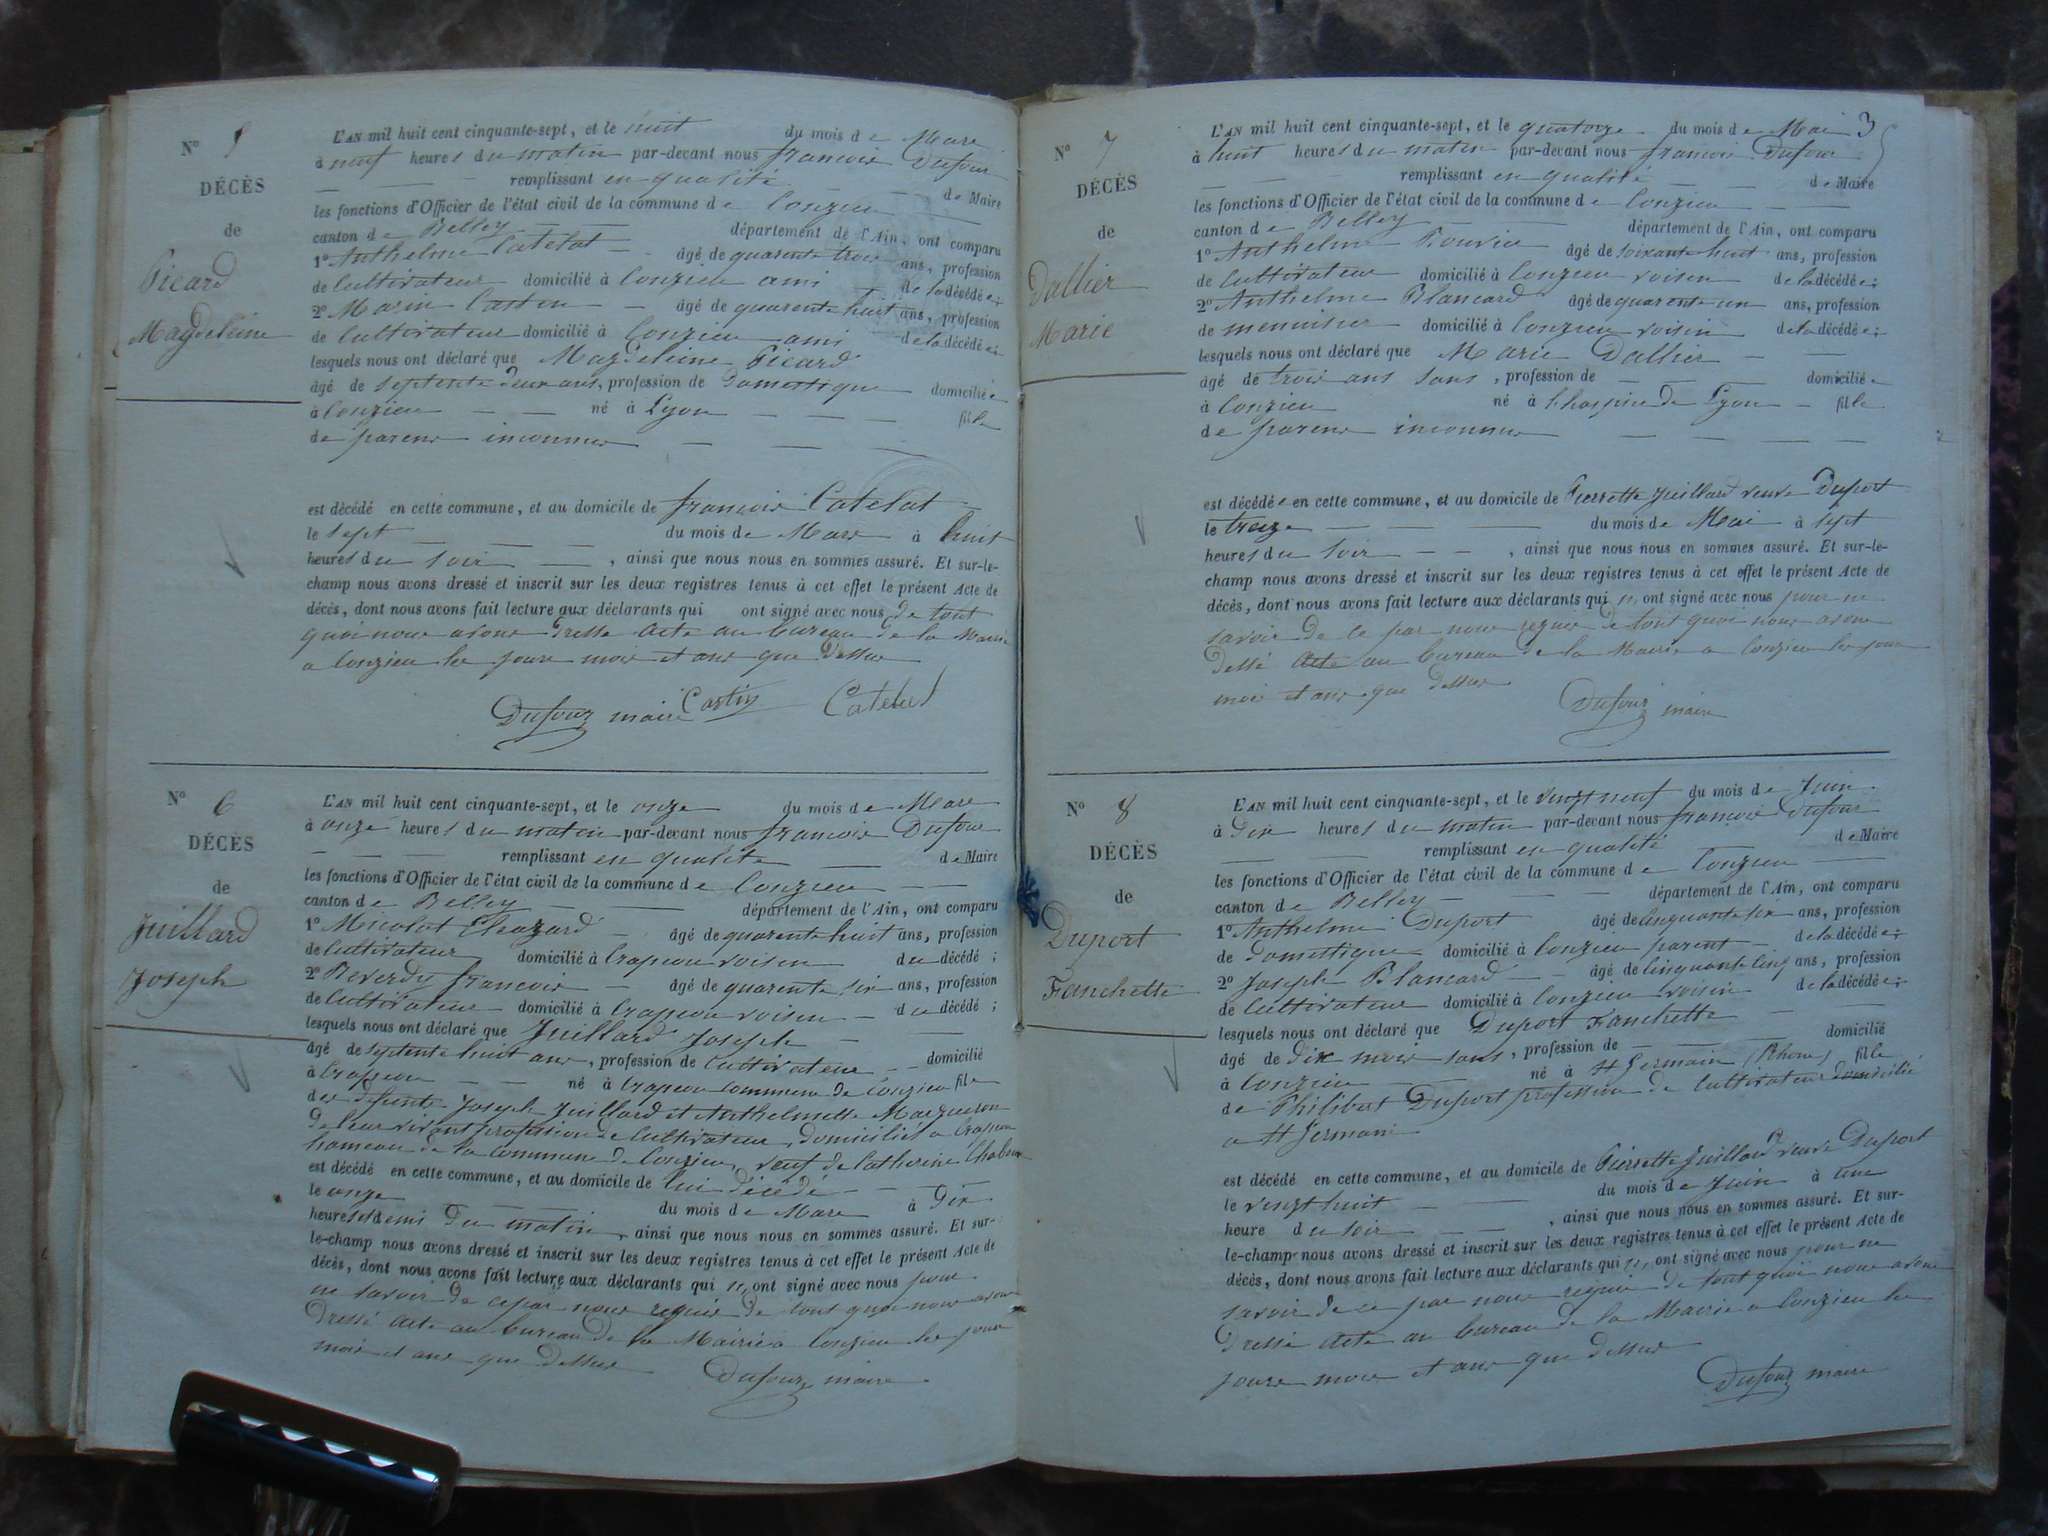 N° 5
DÉCÈS
de
Picard
Magdeleine
L'AN mil huit cent cinquante-sept, et le huit du mois de Mars
à neuf heures du matin par-devant nous françois Dufour
remplissant en qualité de Maire
les fonctions d'Officier de l'état civil de la commune de Conzieu
canton de Belley département de l'Ain, ont comparu
1° Anthelme Catelat âgé de quarente trois ans, profession
de Cultivateur domicilié à Conzieu ami de la décédée;
2° Marin Castin âgé de quarente huit ans, profession
de Cultivateur domicilié à Conzieu ami de la décédée;
lesquels nous ont déclaré que Magdeleine Picard
âgé de septente deux ans, profession de Domestique domiciliée
à Conzieu né à Lyon fille
de parens inconnus
est décédé en cette commune, et au domicile de françois Catelat
le sept du mois de Mars à huit
heures du soir, ainsi que nous nous en sommes assuré. Et sur-le-
champ nous avons dressé et inscrit sur les deux registres tenus à cet effet le présent Acte de
décès, dont nous avons fait lecture aux déclarants qui ont signé avec nous de tout
quoi nous avons dressé acte au bureau de la Mairie
a Conzieu les jours mois et ans que dessus
Dufour maire Castin Catelat
N° 6
DÉCÈS
de
Juillard
Joseph
L'AN mil huit cent cinquante-sept, et le onze du mois de Mars
à onze heures du matin par-devant nous françois Dufour
remplissant en qualité de Maire
les fonctions d'Officier de l'état civil de la commune de Conzieu
canton de Belley département de l'Ain, ont comparu
1° Micolat Eléazard âgé de quarente huit ans, profession
de Cultivateur domicilié à Crapeou voisin du décédé;
2° Reverdy françois âgé de quarente six ans, profession
de Cultivateur domicilié à Crapeou voisin du décédé;
lesquels nous ont déclaré que Juillard Joseph
âgé de septente huit ans, profession de Cultivateur domicilié
à Crapeou né à Crapeou commune de Conzieu fils
des défunts Joseph Juillard et Anthelmette Marqueron
de leur vivant profession de Cultivateur, domiciliés a Crapeou
hameau de la commune de Conzieu, veuf de Catherine
est décédé en cette commune, et au domicile de lui décédé
le onze du mois de Mars à Dix
heures et demi du matin, ainsi que nous nous en sommes assuré. Et sur-
le-champ nous avons dressé et inscrit sur les deux registres tenus à cet effet le présent Acte de
décès, dont nous avons fait lecture aux déclarants qui n, ont signé avec nous pour
ne savoir de ce par nous requis de tout quoi nous avons
Dressé acte au bureau de la Mairie a Conzieu les jours
mois et ans que dessus Dufour maire
3
N° 7
DÉCÈS
de
Dallier
Marie
L'AN mil huit cent cinquante-sept, et le quatorze du mois de Mai
à huit heures du matin par-devant nous françois Dufour
remplissant en qualité de Maire
les fonctions d'Officier de l'état civil de la commune de Conzieu
canton de Belley département de l'Ain, ont comparu
1° Anthelme âgé de soixante huit ans, profession
de Cultivateur domicilié à Conzieu voisin de la décédée;
2° Anthelme Blancard âgé de quarente un ans, profession
de menuisier domicilié à Conzieu voisin de la décédée;
lesquels nous ont déclaré que Marie Dallier
âgé de trois ans sans, profession de domiciliée
à Conzieu né à l'hospice de Lyon fille
de parens inconnus
est décédée en cette commune, et au domicile de Pierrette Juillard veuve Duport
le treize du mois de Mai à sept
heures du soir, ainsi que nous nous en sommes assuré. Et sur-le-
champ nous avons dressé et inscrit sur les deux registres tenus à cet effet le présent Acte de
décès, dont nous avons fait lecture aux déclarants qui n, ont signé avec nous pour ne
savoir de ce par nous requis de tout quoi nous avons
dessé acte au bureau de la Mairie a Conzieu les jours
mois et ans que dessus
Dufour maire
N° 8
DÉCÈS
de
Duport
Fanchette
L'AN mil huit cent cinquante-sept, et le vingt neuf du mois de Juin
à Dix heures du matin par-devant nous françois Dufour
remplissant en qualité de Maire
les fonctions d'Officier de l'état civil de la commune de Conzieu
canton de Belley département de l'Ain, ont comparu
1° Anthelme Duport âgé de cinquante six ans, profession
de Domestique domicilié à Conzieu parent de la décédée;
2° Joseph Blancard âgé de cinquante cinq ans, profession
de Cultivateur domicilié à Conzieu voisin de la décédée;
lesquels nous ont déclaré que Duport Fanchette
âgé de dix mois sans, profession de domicilié
à Conzieu né à St Germain (Rhone) fille
de Philibert Duport profession de Cultivateur domicilié
a St Germain
est décédé en cette commune, et au domicile de Pierrette Juillard veuve Duport
le vingt huit du mois de Juin à une
heure du soir, ainsi que nous nous en sommes assuré. Et sur-
le-champ nous avons dressé et inscrit sur les deux registres tenus à cet effet le présent Acte de
décès, dont nous avons fait lecture aux déclarants qui n, ont signé avec nous pour ne
savoir de ce par nous requis de tout quoi nous avons
Dressé acte au bureau de la Mairie a Conzieu les
jours mois et ans que dessus
Dufour maire